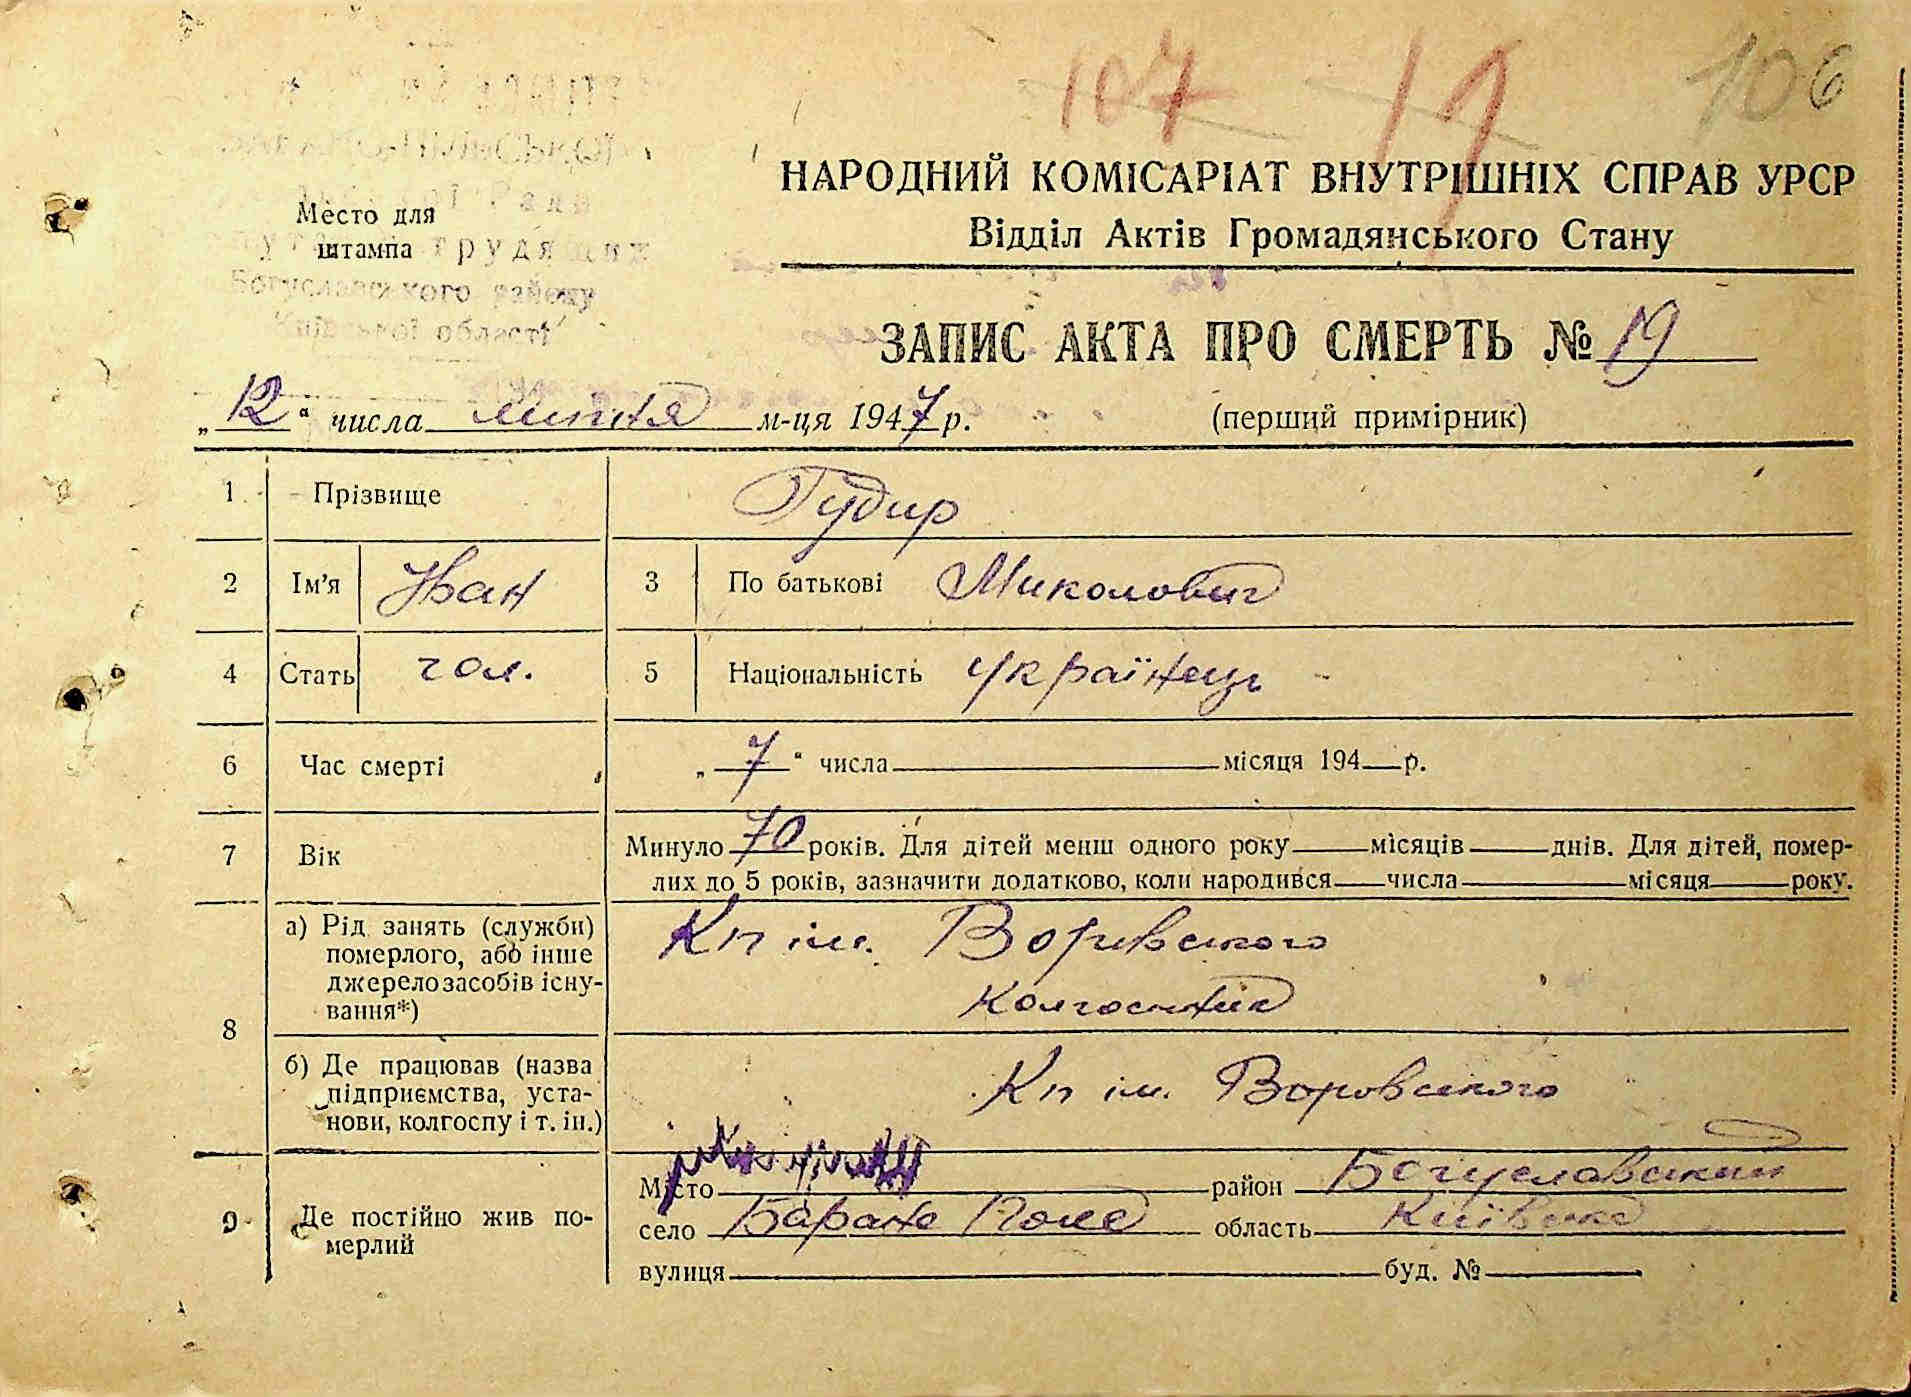 107 11 106
НАРОДНИЙ КОМІСАРІАТ ВНУТРІШНІХ СПРАВ УРСР
Відділ Актів Громадянського Стану
Ради
Место для
штампа
трудящих
Богуславського району
Київської області
ЗАПИС АКТА ПРО СМЕРТЬ № 19
„12“ числа липня м-ця 1947 р.
(перший примірник)
1 Прізвище Гудир
2 Ім’я Іван 3 По батькові Миколович
4 Стать чол. 5 Національність українець
6 Час смерті „7“ числа місяця 194 р.
7 Вік Минуло 70 років. Для дітей менш одного року місяців днів. Для дітей, помер-
лих до 5 років, зазначити додатково, коли народився числа місяця року.
8
а) Рід занять (служби)
померлого, або інше
джерело засобів існу-
вання*)
Кп ім. Воровського
Колгоспник
б) Де працював (назва
підприємства, уста-
нови, колгоспу і т. ін.)
Кп ім. Воровського
9 Де постійно жив по-
мерлий
Місто район Богуславський
село Баране Поле область Київська
вулиця буд. №